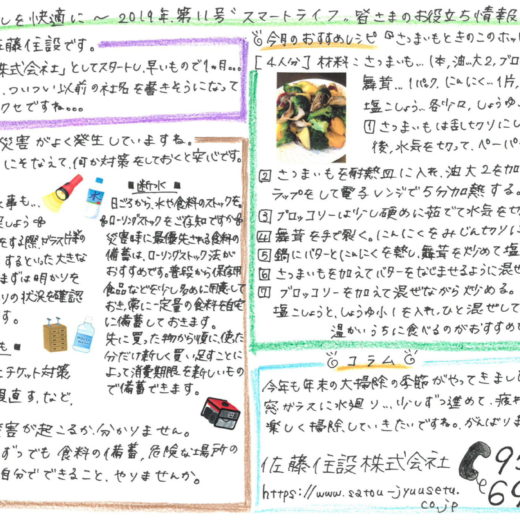 しを快適に 〜2019年.第11号 スマートライフ 皆さまのお役立ち情報
佐藤住設です。
株式会社」としてスタートし、早いもので1ヵ月...
、ついつい以前の社名を書きそうになって
クセですね...
災害がよく発生していますね。
にそなえて、何か対策をしておくと安心です。
水
■断水■
日ごろから、水や食料のストックを。
ローリングストックをご存知ですか
災害時に最優先される食料の
備蓄は、ローリングストック法が
おすすめです。普段から保存用
食品などを少し多めに用意して
おき、常に一定量の食料を自宅
に備蓄しておきます。
先に買った物から順に、使った
分だけ新しく買い足すことに
よって消費期限を新しいもの
で備蓄できます。
事も...
しょう
をする際、ガラスが等の
するといった大きな
まずは明かりを
りの状況を確認
す。
も■
エチケット対策
見直す、など、
災害が起こるか分かりません。
ずつでも食料の備蓄、危険な場所の
自分でできること、やりませんか。
今月のおすすめレシピ さつまいもときのこのホッ
[4人分] 材料:さつまいも...1本、油...大2、ブロ
舞茸...1パック、にんにく...1片、
塩こしょう...各少々、しょうゆ
① さつまいもは舌しゃりにし
後、水気を切って、ペーパー
② さつまいもを耐熱皿に入れ、油大2を加
ラップをして電子レンジで5分加熱する。
③ ブロッコリーは少し硬めに茹でて水気を切
④ 舞茸を手で裂く。にんにくをみじん切りに
⑤ 鍋にバターとにんにくを熱し、舞茸を炒めて塩
⑥ さつまいもを加えてバターをなじませるように混ぜ
⑦ ブロッコリーを加えて混ぜながら炒める。
塩こしょうと、しょうゆ小1を入れ、ひと混ぜして
温かいうちに食べるのがおすすめ
コラム
今年も年末の大掃除の季節がやってきまし
窓ガラスに水廻り...少しずつ進めて、疲れ
楽しく掃除していきたいですね。がんばりま
佐藤住設株式会社
https://www.satou-jyuusetu.
co.jp
95
69